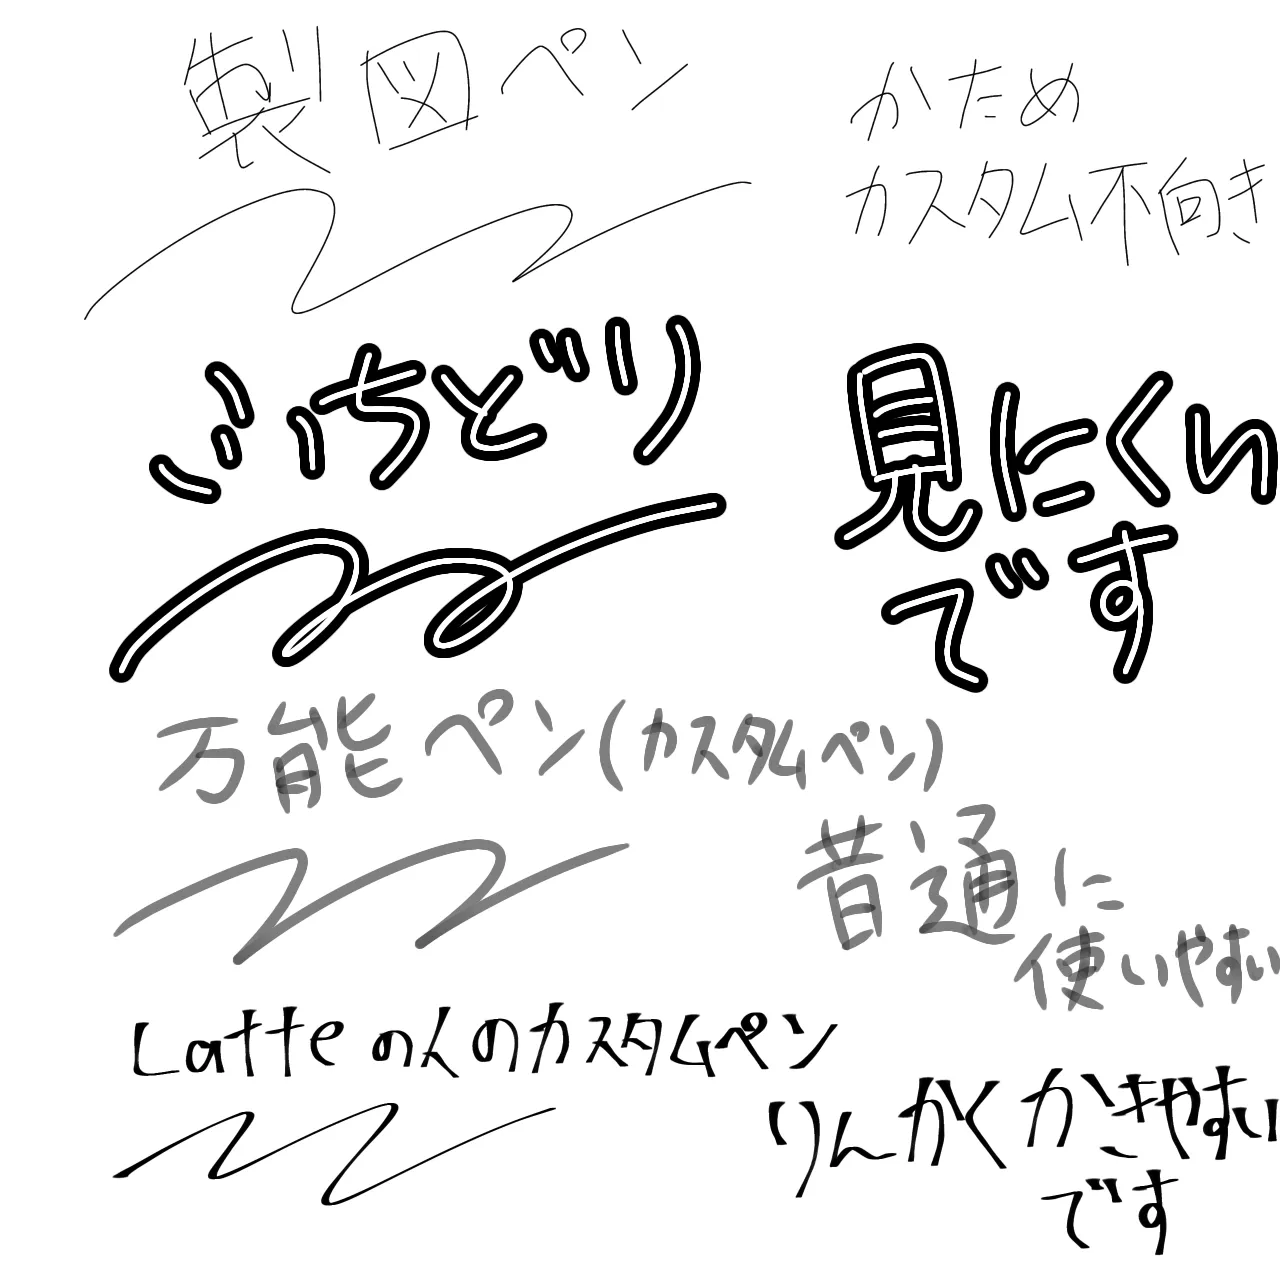 製図ペン
かため
カスタム不向き
ふちどり
見にくい
です
万能ペン(カスタムペン)
昔通に
使いやすい
Latteのんのカスタムペン
りんかくかきやすい
です